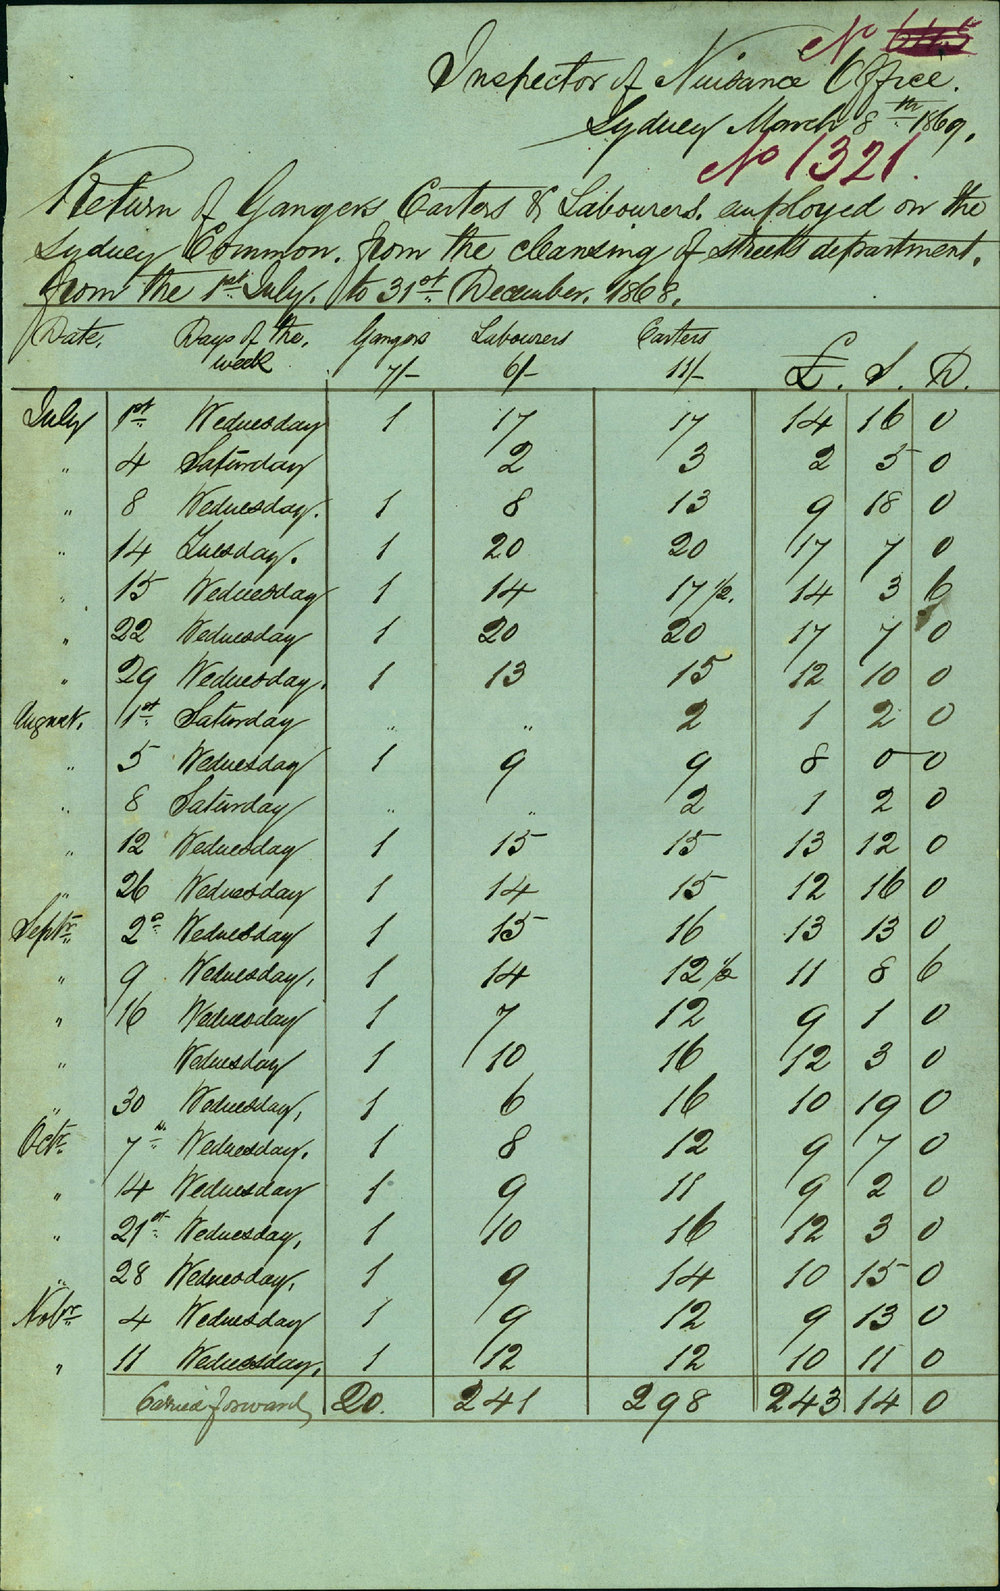 No 645
Inspector of Nuisance Office.
Sydney March 8th 1869.
No 1321.
Return of Gangers Carters & Labourers. employed on the
Sydney Common. from the cleansing of streets department.
from the 1st July. to 31st December. 1868.
Date. Days of the. week Gangers 7/- Labourers 6/- Carters 11/- £. S. D.
July 1st Wednesday 1 17 17 14 16 0
" 4 Saturday 2 3 2 5 0
" 8 Wednesday. 1 8 13 9 18 0
" 14 Tuesday. 1 20 20 17 7 0
" 15 Wednesday 1 14 17 1/2. 14 3 6
" 22 Wednesday 1 20 20 17 7 0
" 29 Wednesday. 1 13 15 12 10 0
August. 1st Saturday " " 2 1 2 0
" 5 Wednesday 1 9 9 8 0 0
" 8 Saturday " " 2 1 2 0
" 12 Wednesday 1 15 15 13 12 0
" 26 Wednesday 1 14 15 12 16 0
Septr 2d Wednesday 1 15 16 13 13 0
" 9 Wednesday, 1 14 12 1/2 11 8 6
" 16 Wednesday 1 7 12 9 1 0
" Wednesday 1 10 16 12 3 0
" 30 Wednesday, 1 6 16 10 19 0
Octr 7th Wednesday. 1 8 12 9 7 0
" 14 Wednesday 1 9 11 9 2 0
" 21st Wednesday, 1 10 16 12 3 0
" 28 Wednesday, 1 9 14 10 15 0
Nobr 4 Wednesday 1 9 12 9 13 0
" 11 Wednesday. 1 12 12 10 11 0
Carried forward 20. 241 298 243 14 0